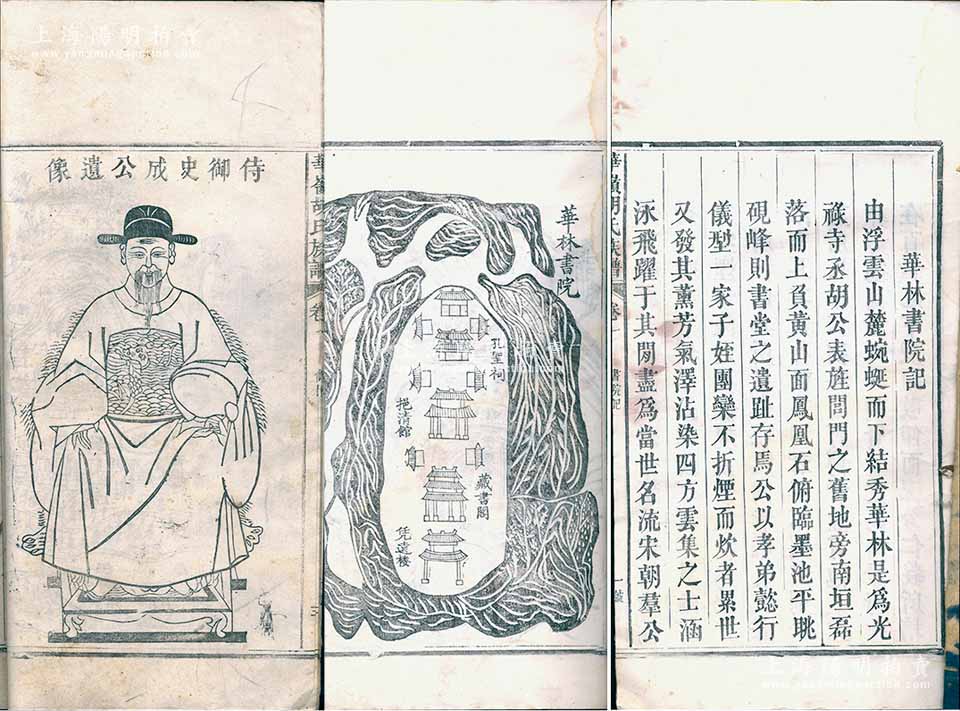 上海陽明拍賣
華林書院記
由浮雲山麓蜿蜒而下結秀華林是爲光
祿寺丞胡公表旌閭門之舊地旁南垣磊
落而上負黃山面鳳凰石俯臨墨池平眺
硯峰則書堂之遺趾存焉公以孝弟懿行
儀型一家子姪團欒不折煙而炊者累世
又發其薰芳氣澤沾染四方雲集之士涵
泳飛躍于其閒盡爲當世名流宋朝羣公
胡氏族譜
卷一
書院記
華林書院
孔聖祠
挹清館
藏書閣
胡氏族譜
卷一
侍御史成公遺像
上海陽明拍賣